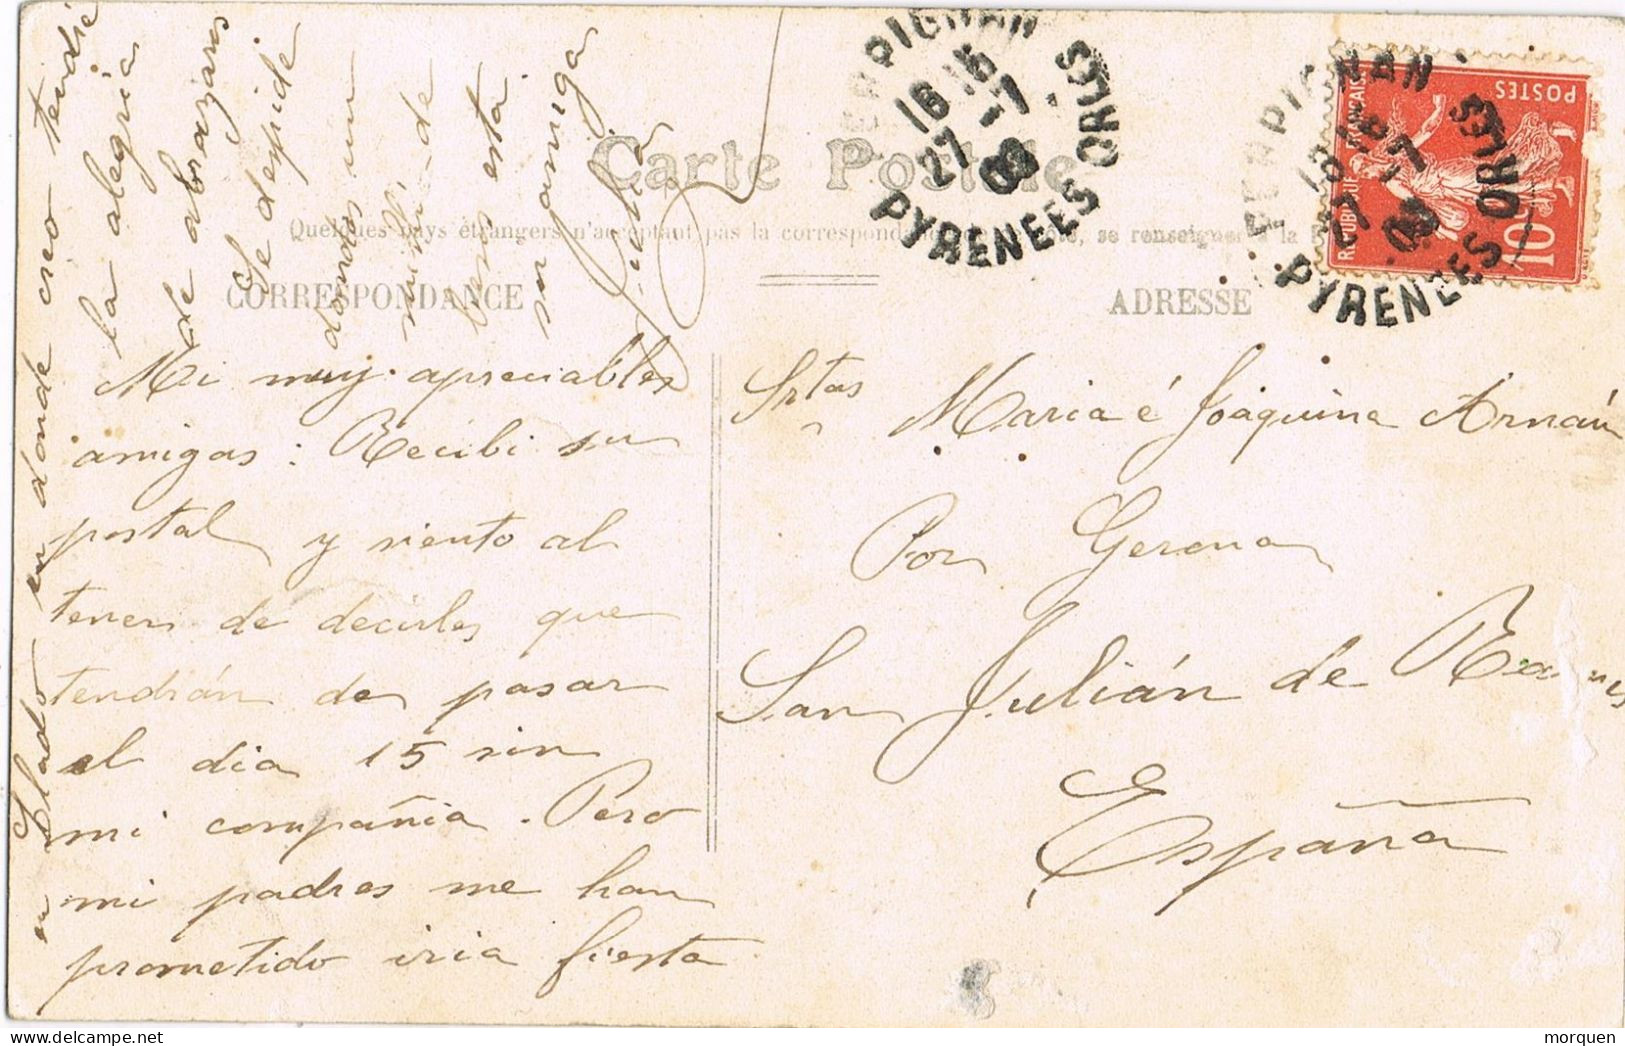 Carte Postale
Quelques pays étrangers n'acceptant pas la correspondance se renseigner à la
CORRESPONDANCE
ADRESSE
Mi muy apreciables
amigas: Recibi su
postal y siento al
tener de decirles que
tendrán de pasar
el dia 15 sin
mi compañia. Pero
mi padres me han
prometido iria fiesta
en donde creo tendré
la alegria
de abrazaros
Se despide
dandos un
de
esta
su amiga
Srtas Maria é Joaquina Arnau
Por Gerona
San Julián de
España
PERPIGNAN
16 15
27 -7
09
PYRENEES ORLES
PERPIGNAN
16 15
27 -7
09
PYRENEES ORLES
REPUBLIQUE FRANÇAISE
POSTES
10c
morquen